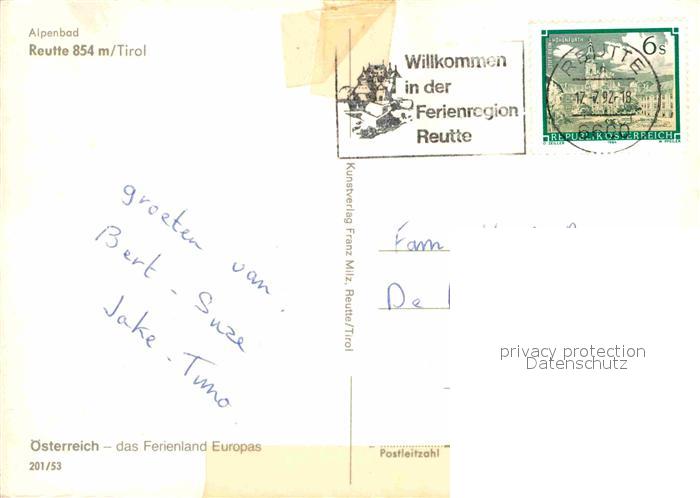 Alpenbad
Reutte 854 m/Tirol
Willkommen
in der
Ferienregion
Reutte
6s
REUTTE
17.-7.92-18
REPUBLIK ÖSTERREICH
1984
Kunstverlag Franz Milz, Reutte/Tirol
groeten van.
Bert - Suze
Jake - Timo
Fam
De
privacy protection
Datenschutz
Österreich – das Ferienland Europas
201/53
Postleitzahl